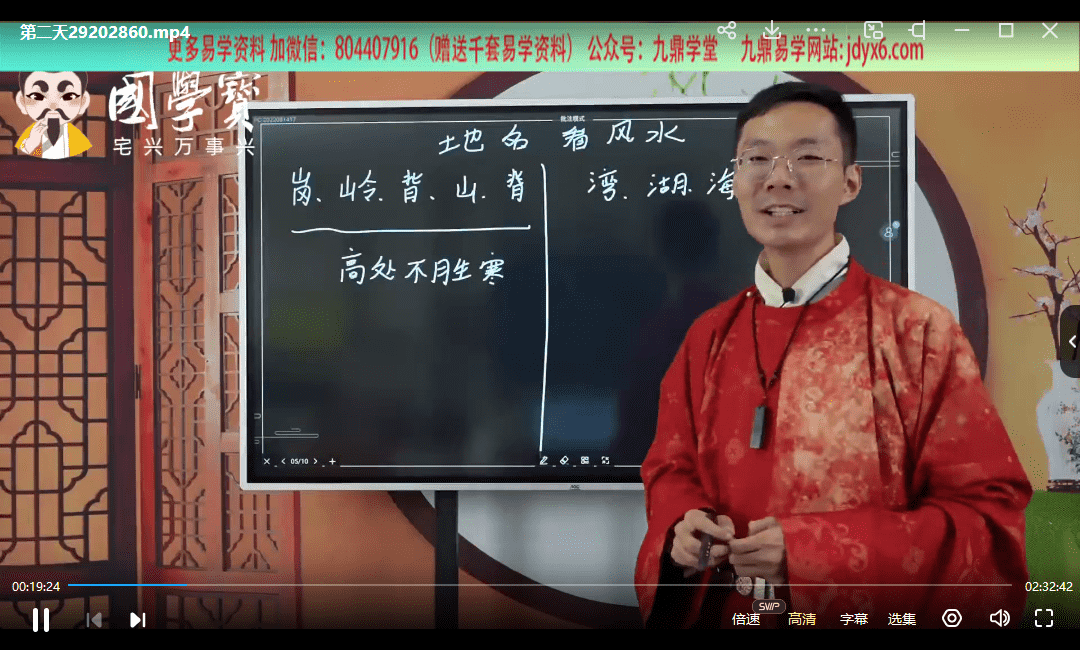 第二天29202860.mp4
更多易学资料 加微信：804407916（赠送千套易学资料） 公众号：九鼎学堂 九鼎易学网站:jdyx6.com
國學寶
宅兴万事兴
批注模式
土也 名 看 风 水
岗、山岭、背、山、脊
湾、湖、海
高处不胜寒
05/10
00:19:24
02:32:42
SVIP
倍速 高清 字幕 选集